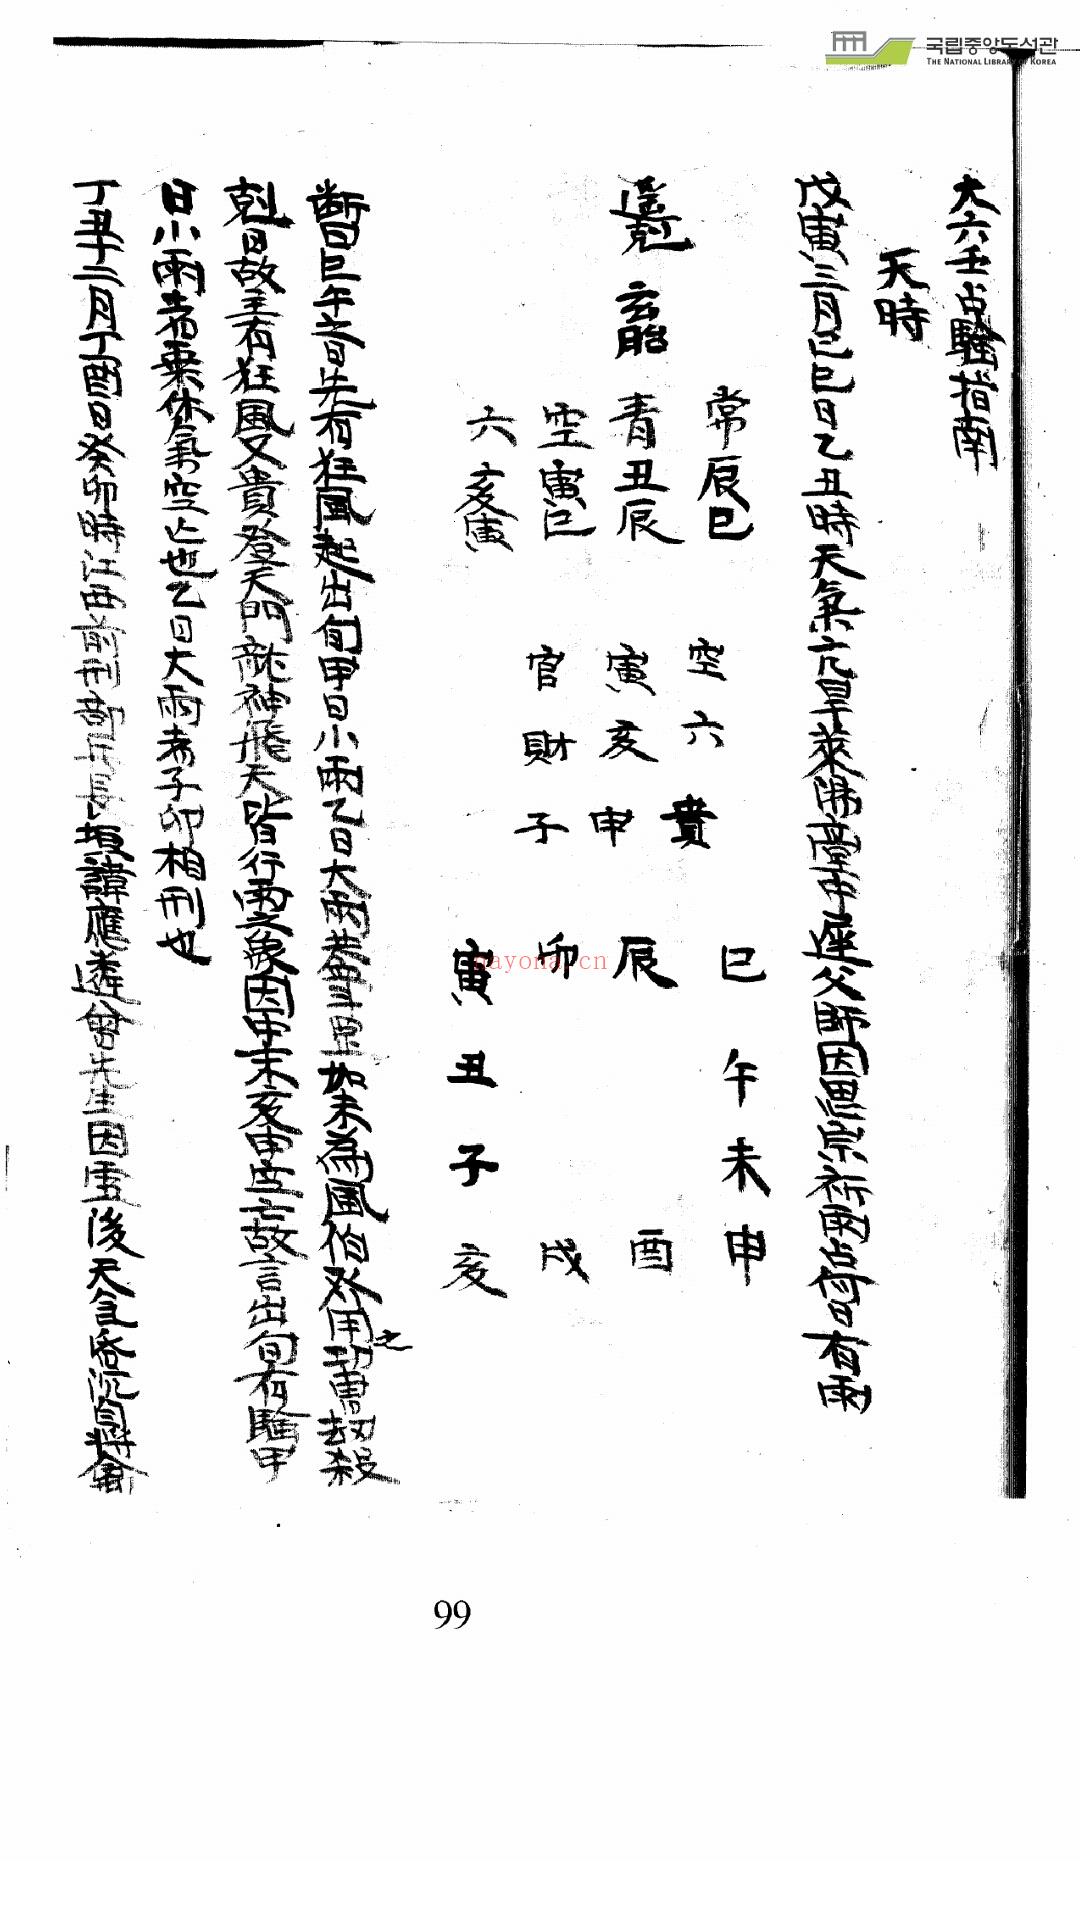 국립중앙도서관
THE NATIONAL LIBRARY OF KOREA
大六壬占騐指南
天時
戊寅三月己巳日乙丑時天氣亢旱萊沸臺中座父師因思宗祈雨占曾日有雨
遥尅 玄胎
常辰巳
青丑辰
空寅巳
六亥寅
空六貴
寅亥申
官財子
巳午未申
辰 酉
卯 戌
寅丑子亥
斷曰巳午之日先有狂風起出旬甲日小雨乙日大雨葢罡如未為風伯發用功曹刼殺之
尅日故主有狂風又貴登天門龍神飛天皆行雨之象因中末亥申空亡故言出旬有騐甲
日小雨者乗休氣空亡也乙日大雨者子卯相刑也
丁丑十二月丁酉日癸卯時江西前刑部長垣諱應遴曾先生因雪後天色昏沉
dayona.cn
99